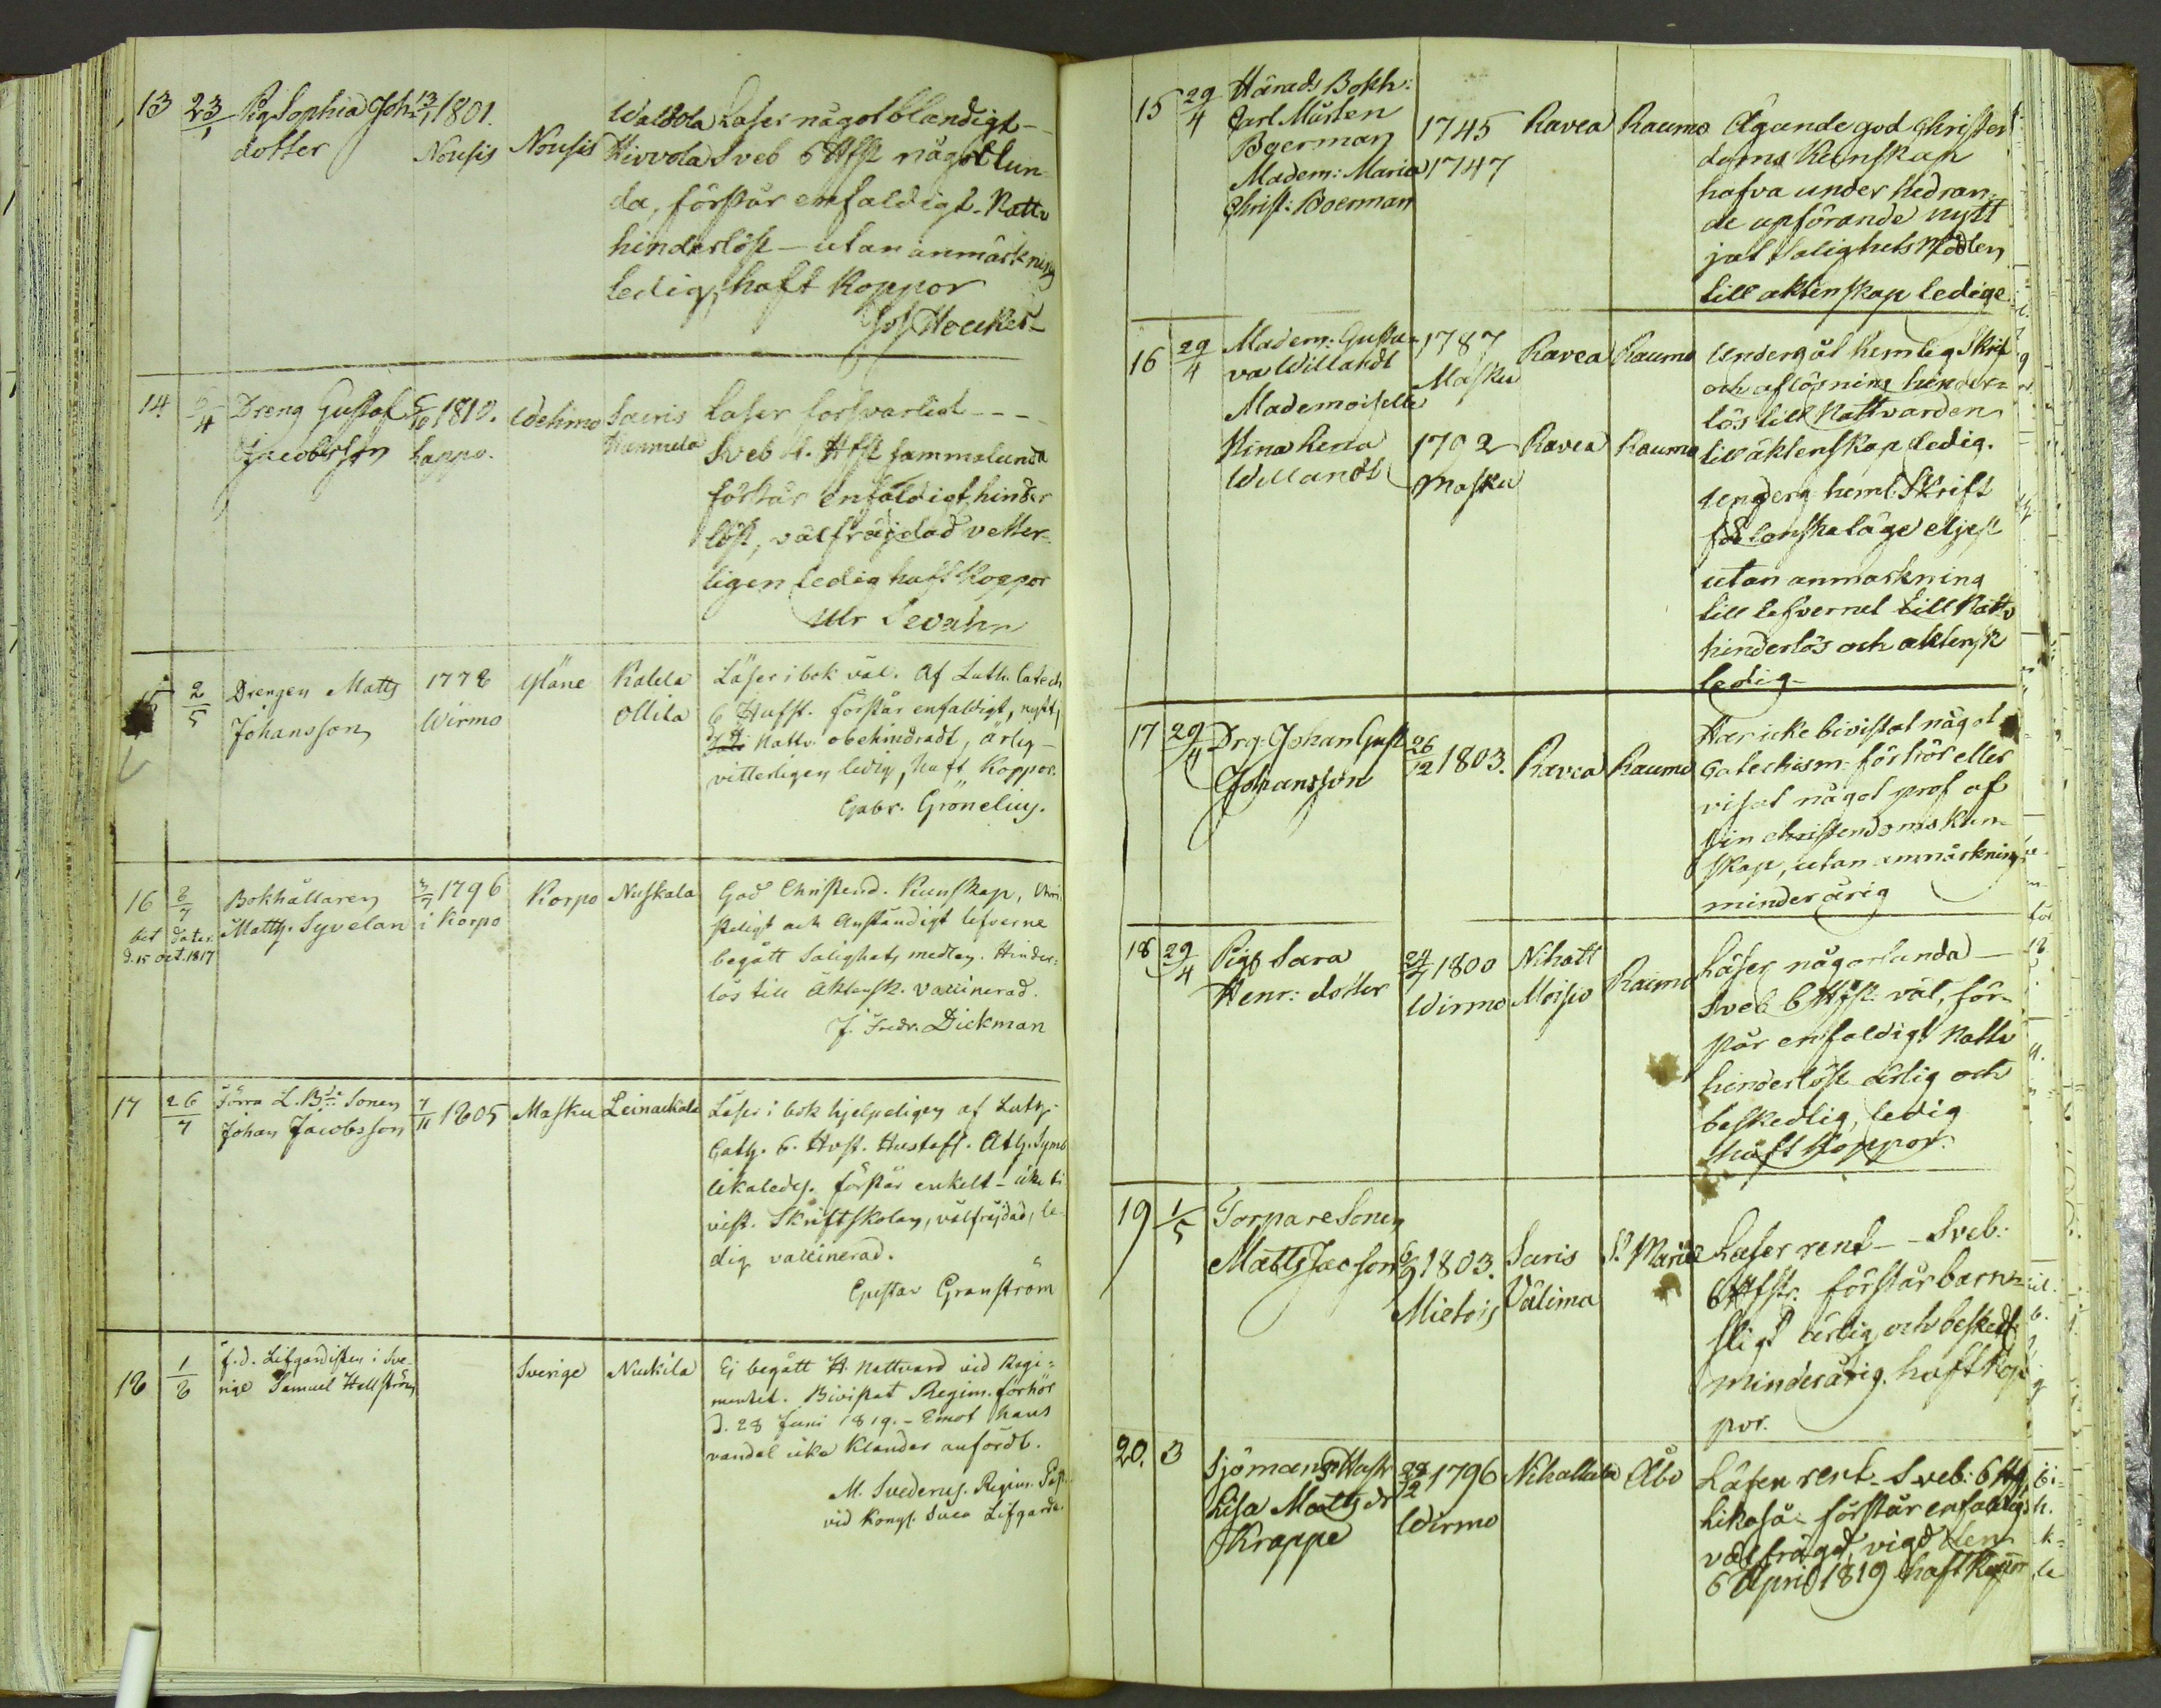 13 23/1 Pig. Sophia Joh:
dotter
13/1 1801.
Nousis
Nousis
Waldola
Hirvola
Läser något blandigt
Sveb 6 Hfst någotlun
da, förstår enfaldigt. Nattv
hinderlöst – utan anmärkning
ledig, haft Koppor
14 2/4 Dreng Gustaf
Jacobsson
5/10 1810.
Lappo.
Wehmo
Sairis
Hannula
Läser försvarligt
Sveb 4. Hfst sammalunda
förstår enfaldigt, hinder
löst, välfräjdad vetter-
ligen ledig haft Koppor
Ulr Levahn
15 2/5 Drengen Matts
Johansson
1778
Wirmo
Yläne
Kalela
Ollila
Läser i bok väl. Af Luth. Catech
6 Hufst. förstår enfaldigt, nyttj
Nattv. obehindradt, ärlig –
vitterligen ledig, haft Koppor.
Gabr. Grönelius.
16 8/7 Bokhållaren
Matths. Syvelan
bet dater
d. 15 Oct. 1817
3/7 1796
i Korpo
Korpo
Nuskala
God Christend. Kunskap, Chri
steligt och Anständigt lefverne
begått Salighets medlen. Hinder-
lös till Äktensk. Vaccinerad.
J. Fredr. Dickman
17 26/7 Förra L. Bds Sonen
Johan Jacobsson
7/11 1805
Masku
Leinakkala
Läser i bok hjelpeligen af Luth.
Cath. 6. Hvst. Hustafl. Ath. Symb
likaledes. förstår enkelt – icke bi
vist. Skriftskolan, välfräjdad, le-
dig vaccinerad.
Gustav Granström
18 1/8 f. d. Lifgardisten i Sve-
rige Samuel Hellström
Sverige
Nuckila
Ej begått H. Nattvard vid Regi-
mentet. Bivistat Regim. förhör
d. 28 Juni 1819. – Emot hans
vandel icke klander anfördt.
M. Svederus. Regim. Past.
vid Kongl. Svea Lifgarde.
15 29/4 Härads Bokh:
Carl Mårten
Boerman
Madem: Maria
Christ: Boerman
1745
1747
Ravea
Raumo
Ägande god Christen
doms Kunskap
hafva under hedran-
de upförande nytt
jat Salighets Medlen
till äktenskap ledige
16 29/4 Madem: Gusta-
va Willandt
1787
Masku
Ravea
Raumo
Undergåt hemlig Skrift
och aflösning hinder-
lös till Nattvarden
till äktenskap ledig.
Mademoiselle
Hina Lena
Willandt
1792
Masku
Ravea
Raumo
underg heml. Skrift
eljest
utan anmärkning
till lefvernet till Nattv
hinderlös och äktensk
ledig –
17 29/4 Drg. Johan Gust
Johansson
26/12 1803.
Ravea
Raumo
Har icke bivistat något
Catechism: förhör eller
visat något prof af
sin christendoms Kun-
skap, utan anmärkning
minderårig
18 29/4 Piga Sara
Henr: dotter
24/7 1800
Wirmo
Nihatt
Moisio
Raumo
Läser någorlunda –
Sveb 6 Hfst: väl, för-
står enfaldigt Nattv
hinderlöst ärlig och
beskedlig, ledig
haft Koppor.
19 1/5 Torpare Sonen
Matts Jacsson
6/9 1803.
Mietois
Saris
Välimä
St. Mariæ
Läser rent – Sveb:
6 Hfst: förstår barns-
sligt ärlig och beskedl
minderårig. haft Kop
por.
20. 3 Sjömans Hustr
Lisa Matts dr
Krappe
22/2 1796
Wirmo
Nihattula
Åbo
Läser rent. Sveb: 6 Hfs
likaså – förstår enfaldigt
välfrägd, vigd den
6 April 1819 haft Koppor